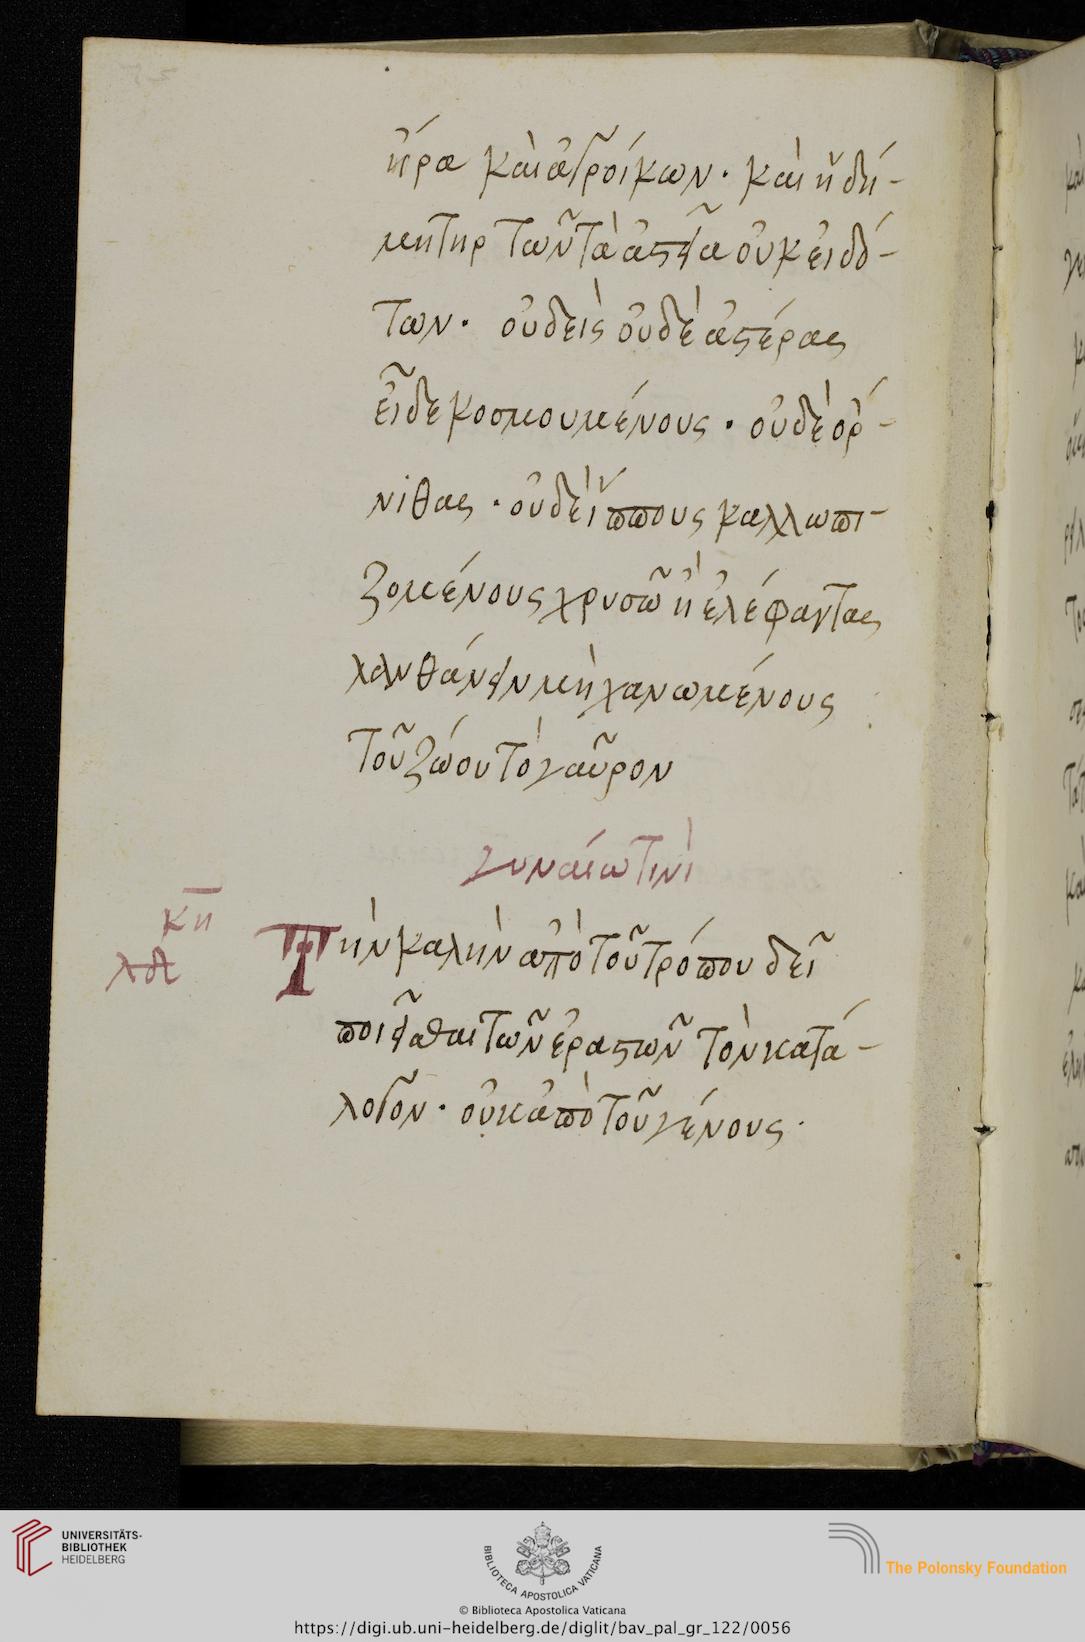 ἥρα καὶ ἀγροίκων· καὶ ἡ δη-
μήτηρ τῶν τὰ ἀστεῖα οὐκ εἰδό-
των· οὐδεὶς οὐδὲ ἀστέρας
εἶδε κοσμουμένους· οὐδὲ ὄρ-
νιθας· οὐδὲ ἵππους καλλωπι-
ζομένους χρυσῷ ἢ ἐλέφαντας
λανθάνειν μηχανωμένους
τοῦ ζώου τὸ γαῦρον
γυναίω τινὶ
κη
λδ
Τὴν καλὴν ἀπὸ τοῦ τρόπου δεῖ
ποιεῖσθαι τῶν ἐραστῶν τὸν κατά-
λογον· οὐκ ἀπὸ τοῦ γένους·
UNIVERSITÄTS-
BIBLIOTHEK
HEIDELBERG
BIBLIOTECA APOSTOLICA VATICANA
The Polonsky Foundation
© Biblioteca Apostolica Vaticana
https://digi.ub.uni-heidelberg.de/diglit/bav_pal_gr_122/0056